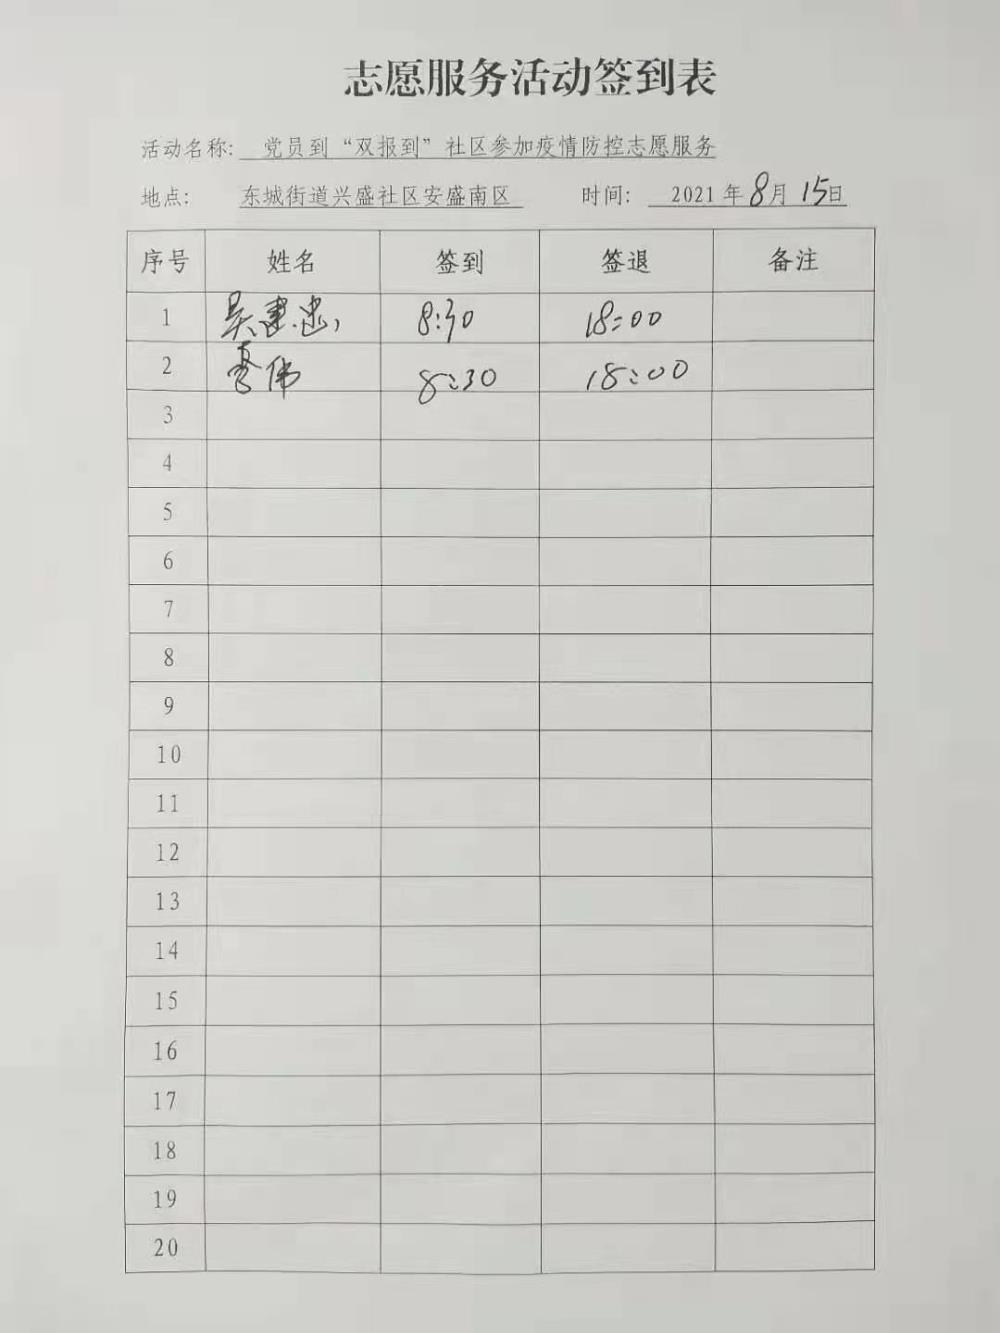 志愿服务活动签到表
活动名称: 党员到“双报到”社区参加疫情防控志愿服务
地点: 东城街道兴盛社区安盛南区 时间: 2021年8月15日
序号 姓名 签到 签退 备注
1 吴建忠 8:30 18:00
2 伟 8:30 18:00
3
4
5
6
7
8
9
10
11
12
13
14
15
16
17
18
19
20